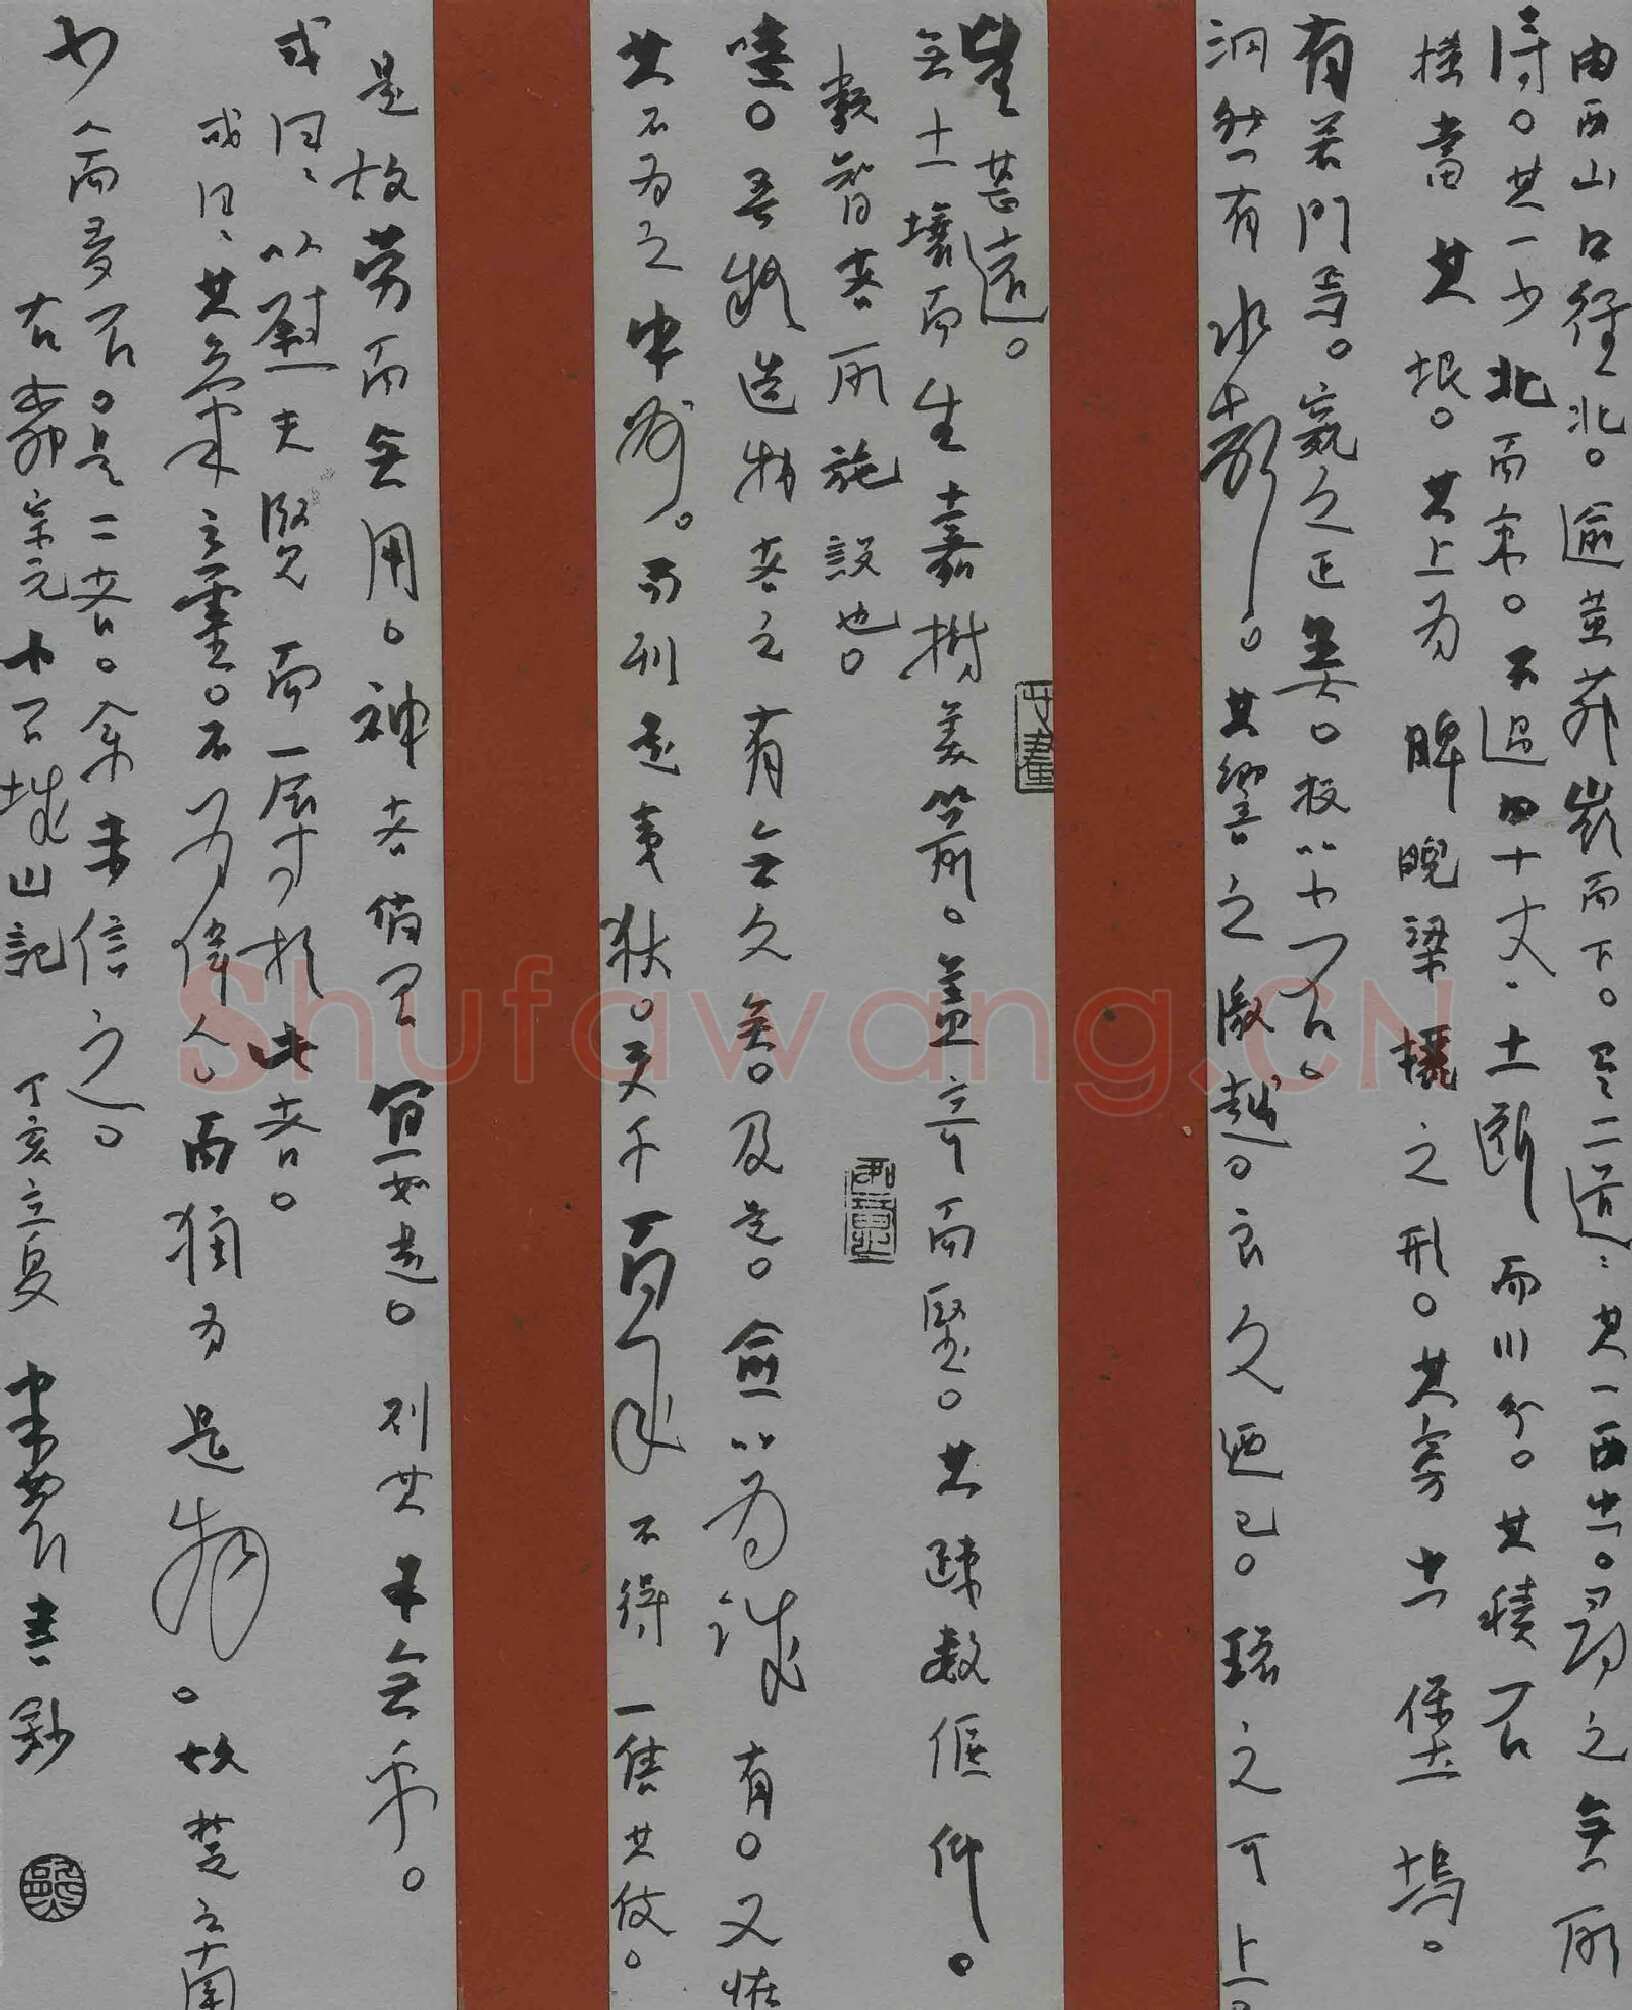 由西山口径北。逾黄茅嶺而下。二道:其一西出。尋之無所
得。其一少北而東。不過四十丈、土斷而川分。其積石
橫當其垠。其上為睥睨梁欐之形。其旁出堡塢。
有若門焉。窺之正黑。投以小石。
洞然有水聲。其響之激越。良久迺已。環之可上。
望甚遠。
無土壤而生嘉樹美箭。益奇而堅。其疏數偃仰。
類智者所施設也。
噫。吾疑造物者之有無久矣。及是。愈以為誠有。又怪
其不為之中州。而列是夷狄。更千百年不得一售其伎。
是故勞而無用。神者倘宜如是。則其果無乎。
或曰、以慰夫賢而辱於此者。
或曰、其氣之靈。不為偉人。而獨為是物。故楚之南
少人而多石。是二者。余未信之。
右柳宗元小石城山記 丁亥立夏 書鈔
Shufawang.CN